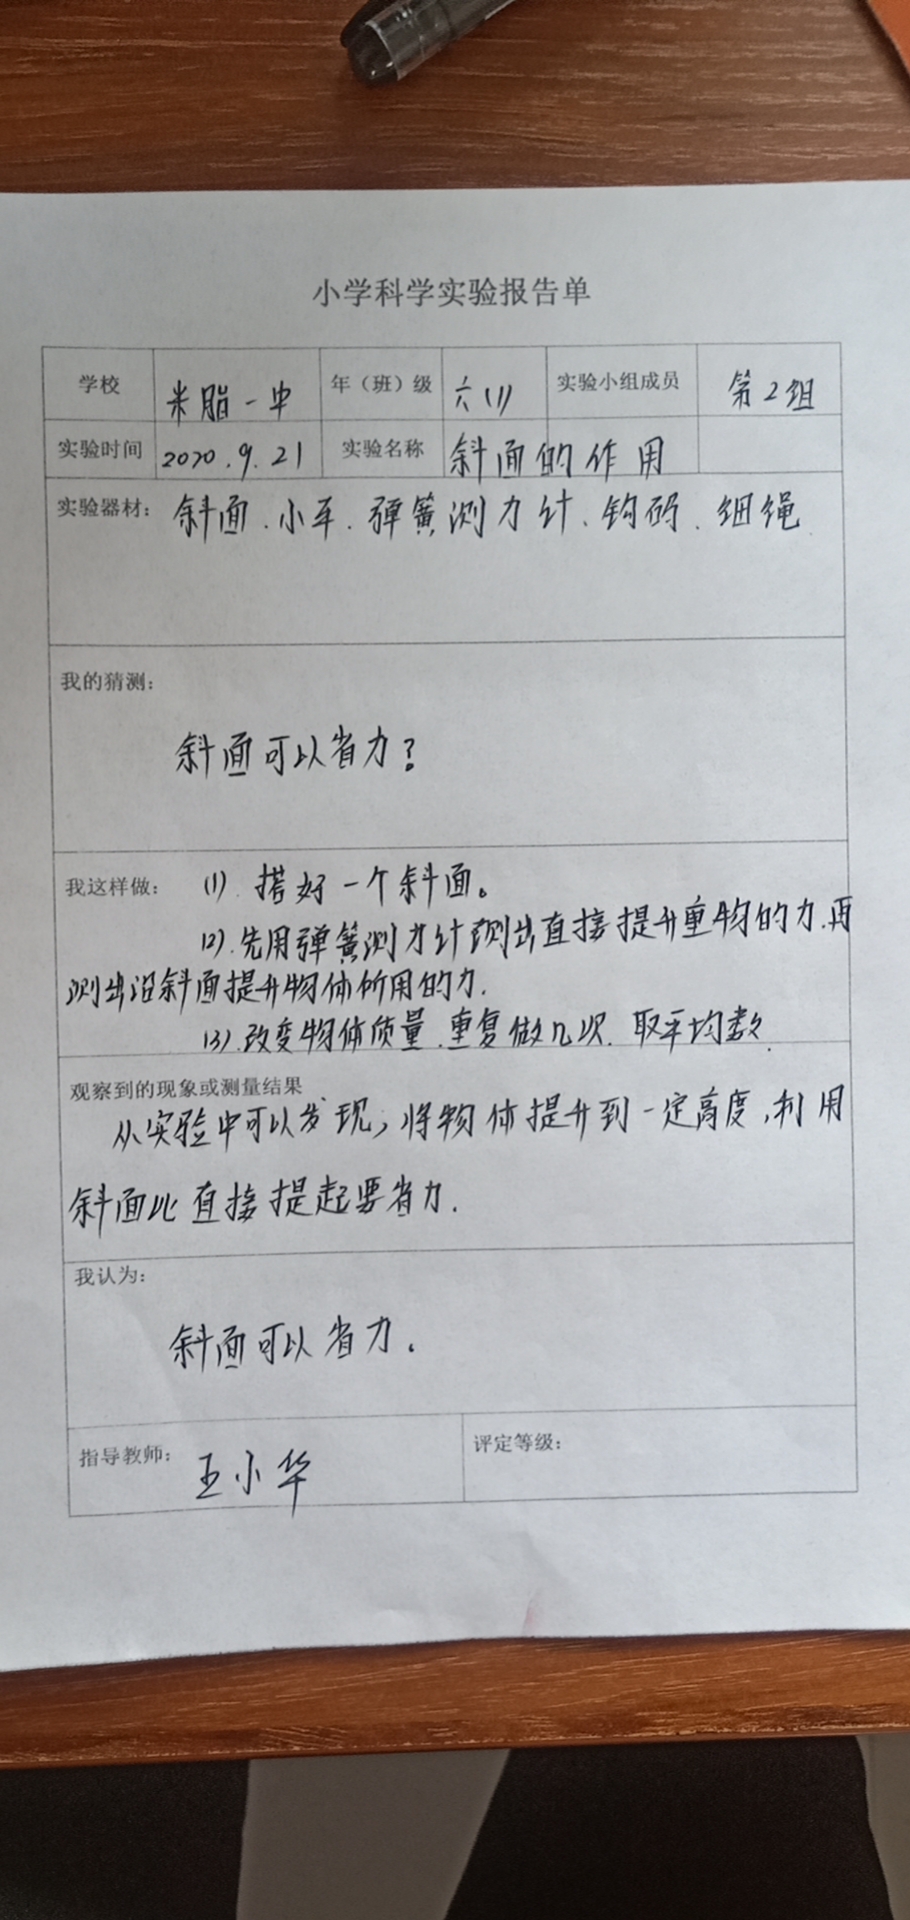 小学科学实验报告单
学校 米脂一中 年（班）级 六(1) 实验小组成员 第2组
实验时间 2020.9.21 实验名称 斜面的作用
实验器材： 斜面、小车、弹簧测力计、钩码、细绳
我的猜测：
斜面可以省力?
我这样做： (1). 搭好一个斜面。
(2).先用弹簧测力计测出直接提升重物的力.再
测出沿斜面提升物体所用的力.
(3).改变物体质量.重复做几次.取平均数.
观察到的现象或测量结果
从实验中可以发现,将物体提升到一定高度,利用
斜面比直接提起要省力.
我认为：
斜面可以省力.
指导教师： 王小华 评定等级：